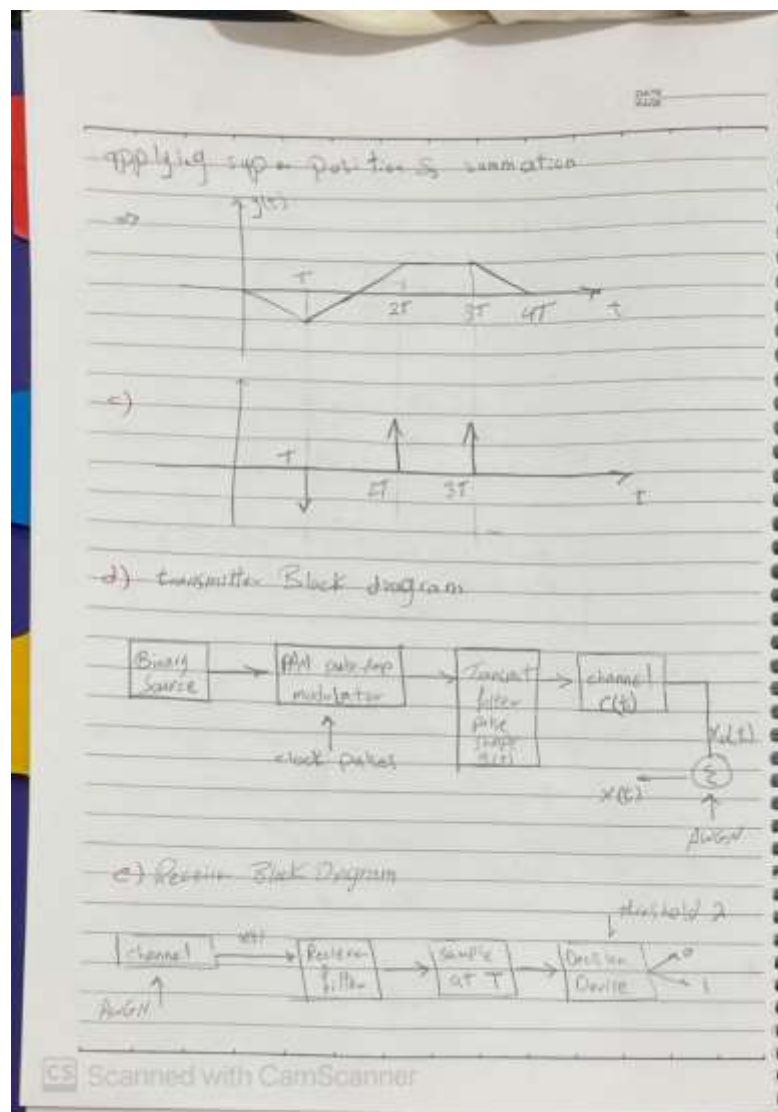 DATE
applying super position & summation
=> y(t)
T 2T 3T 4T t
c)
T 2T 3T t
d) transmitter Block diagram
Binary Source
PAM pulse Amp modulator
Transmit filter pulse shape g(t)
channel c(t)
clock pulses
x(t)
AWGN
e) Receiver Block Diagram
threshold λ
channel
Receiver filter
sample at T
Decision Device
0
1
AWGN
CS Scanned with CamScanner